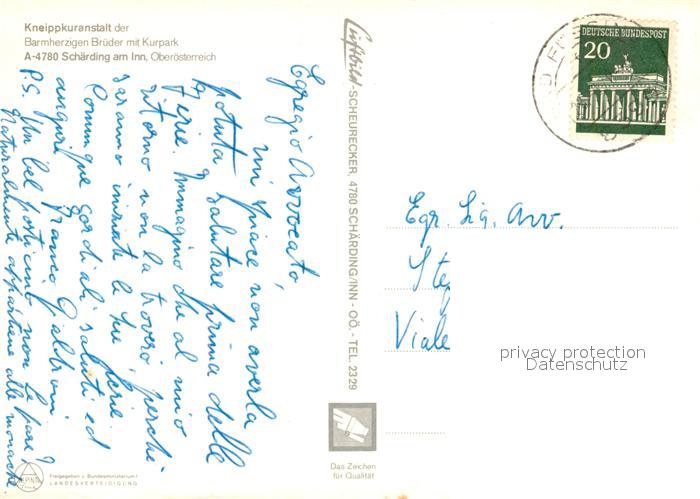 Kneippkuranstalt der
Barmherzigen Brüder mit Kurpark
A-4780 Schärding am Inn, Oberösterreich
Egregio Avvocato,
mi spiace non averla
potuta salutare prima delle
ferie. Immagino che al mio
ritorno non la troverò perché
saranno iniziate le sue ferie.
Comunque cordiali saluti ed
auguri Franco
P.S. Un bel posticino non le pare?
Naturalmente appartiene alle monache
Luftbild-SCHEURECKER, 4780 SCHÄRDING/INN - OÖ. - TEL. 23 29
DEUTSCHE BUNDESPOST
20
Egr. Sig. Avv.
Ste
Viale
privacy protection
Datenschutz
Das Zeichen
für Qualität
ALPINE
Freigegeben v. Bundesministerium f.
LANDESVERTEIDIGUNG